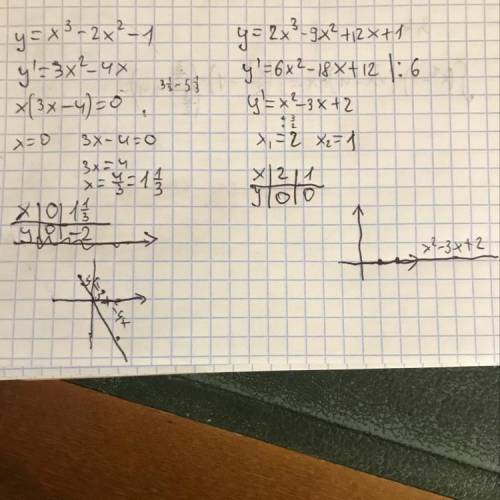 y = x³ - 2x² - 1
y' = 3x² - 4x
x(3x - 4) = 0
x = 0 3x - 4 = 0
3x = 4
x = 4/3 = 1 1/3
x | 0 | 1 1/3
y | 0 | -2
y = 2x³ - 9x² + 12x + 1
y' = 6x² - 18x + 12 | : 6
y' = x² - 3x + 2
x₁ = 2 x₂ = 1
x | 2 | 1
y | 0 | 0
x² - 3x + 2